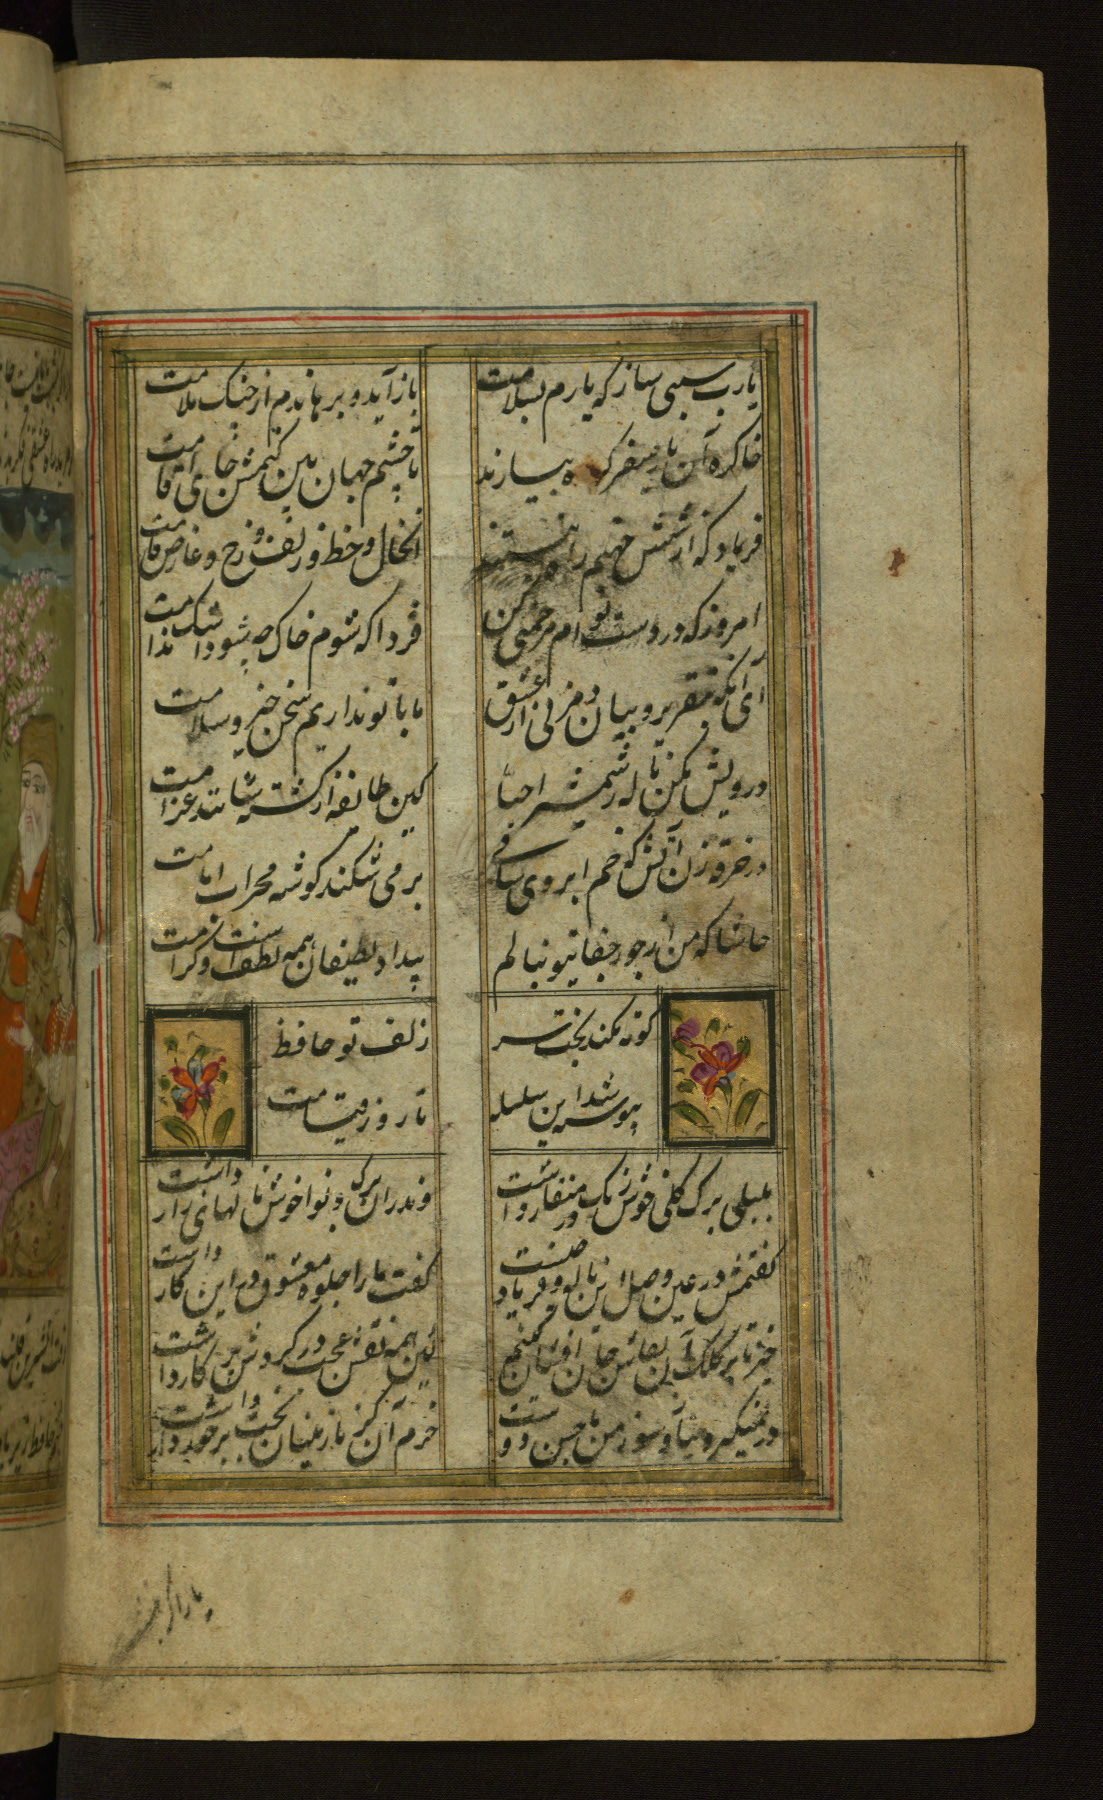 یارب سببی ساز که یارم بسلامت
باز آید و برهاندم از چنک ملامت
خاک ره آن یار سفر کرده بیارند
تا چشم جهان بین کنمش جای اقامت
فریاد که از شش جهتم راه ببستند
آن خال و خط و زلف و رخ و عارض و قامت
امروز که در دست توام مرحمتی کن
فردا که شوم خاک چه سود اشک ندامت
ای آنکه بتقریر و بیان دم زنی از عشق
ما با تو نداریم سخن خیر و سلامت
درویش مکن ناله ز شمشیر احبا
کین طائفه از کشته ستانند غرامت
در خرقه زن آتش که خم ابروی ساقی
بر می شکند کوشه محراب امامت
حاشا که من از جور و جفای تو بنالم
بیداد لطیفان همه لطف است و کرامت
کوته نکند بحث سر
زلف تو حافظ
پیوسته شد این سلسله
تا روز قیامت
بلبلی برک کلی خوش رنک در منقار داشت
وندران برک و نوا خوش نالهای زار داشت
کفتمش در عین وصل این ناله و فریاد چیست
کفت ما را جلوه معشوق در این کار داشت
خیز تا بر کلک آن نقاش جان افشان کنیم
کین همه نقش عجب در کردش پرکار داشت
در نمیکیرد نیاز و سوز من با حسن دوست
خرم آن کز نازنینان بخت برخوردار داشت
یار اگر